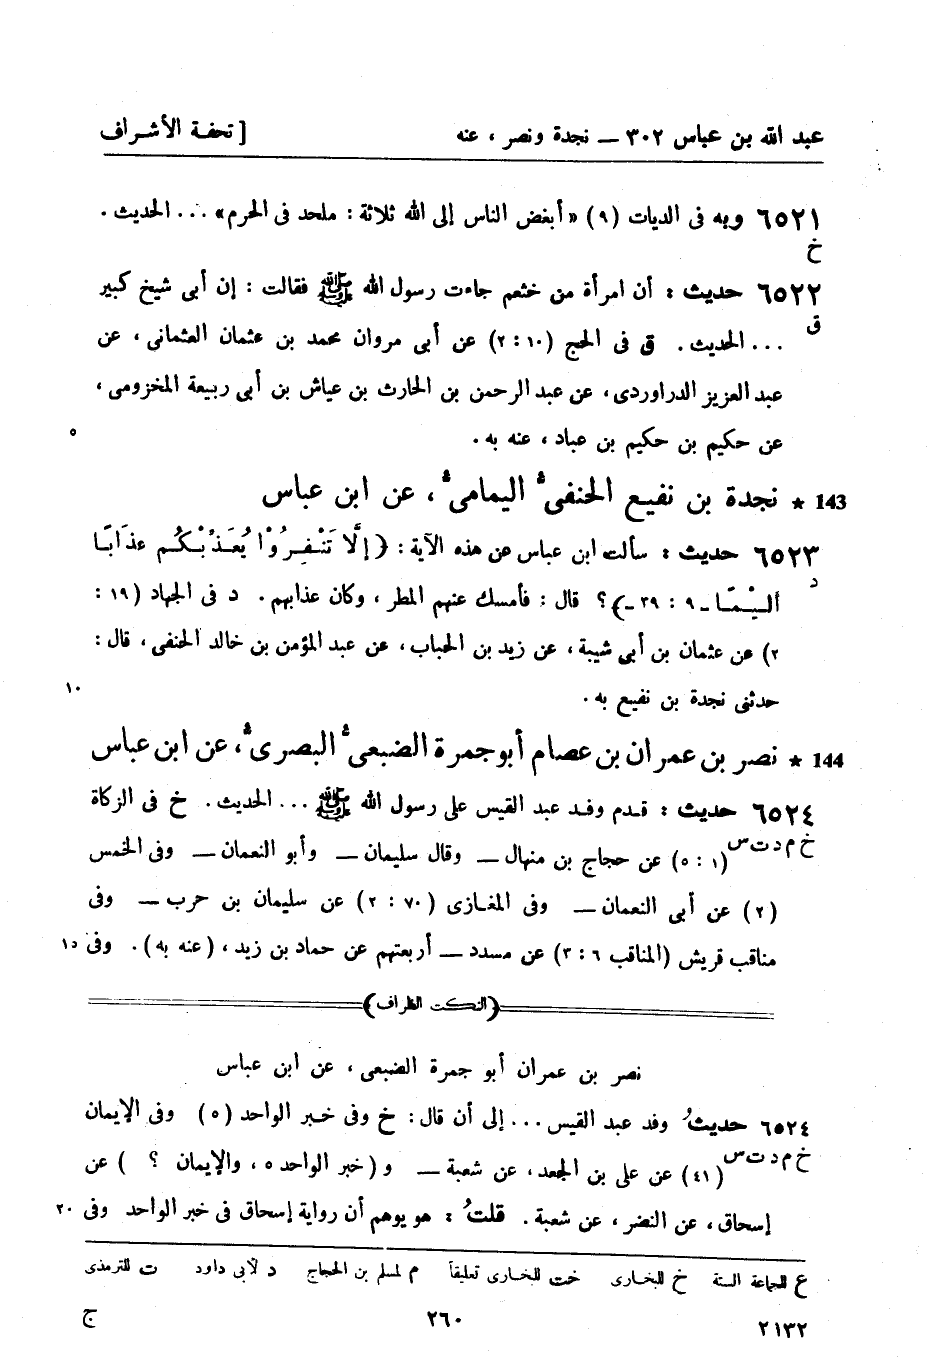 عبد الله بن عباس ٣٠٢ — نجدة ونصر ، عنه [ تحفة الأشراف
٦٥٢١ وبه فى الديات (٩) « أبغض الناس إلى الله ثلاثة : ملحد فى الحرم» ... الحديث .
خ
٦٥٢٢ حديث : أن امرأة من خثعم جاءت رسول الله ﷺ فقالت : إن أبى شيخ كبير
ق
... الحديث . ق فى الحج (١٠ : ٢) عن أبى مروان محمد بن عثمان العثمانى ، عن
عبد العزيز الدراوردى، عن عبد الرحمن بن الحارث بن عياش بن أبى ربيعة المخزومى ،
عن حكيم بن حكيم بن عباد ، عنه به . ٥
143 ★ نجدة بن نفيع الحنفى اليمامى ، عن ابن عباس
٦٥٢٣ حديث : سألت ابن عباس عن هذه الآية : ﴿ إِلَّا تَنْفِرُوْا يُعَذِّبْكُم عذَابًا
د
أليْمًا ـ ٩ : ٣٩ ـ﴾ ؟ قال : فأمسك عنهم المطر ، وكان عذابهم . د فى الجهاد (١٩ :
٢) عن عثمان بن أبى شيبة ، عن زيد بن الحباب ، عن عبد المؤمن بن خالد الحنفى ، قال :
حدثنى نجدة بن نفيع به . ١٠
144 ★ نصر بن عمران بن عصام أبو جمرة الضبعى البصرى ، عن ابن عباس
٦٥٢٤ حديث : قدم وفد عبد القيس على رسول الله ﷺ ... الحديث . خ فى الزكاة
خ م د ت س
(١ : ٥) عن حجاج بن منهال — وقال سليمان — وأبو النعمان — وفى الخمس
(٢) عن أبى النعمان — وفى المغازى (٧٠ : ٢) عن سليمان بن حرب — وفى
مناقب قريش (المناقب ٦ : ٣) عن مسدد — أربعتهم عن حماد بن زيد ، (عنه به) . وفى ١٥
(النكت الظراف)
نصر بن عمران أبو جمرة الضبعى ، عن ابن عباس
٦٥٢٤ حديثُ وفد عبد القيس ... إلى أن قال : خ وفى خبر الواحد (٥) وفى الإيمان
خ م د ت س
(٤١) عن على بن الجعد، عن شعبة — و (خبر الواحد ٥ ، والإيمان ؟ ) عن
إسحاق ، عن النضر ، عن شعبة . قلتُ : هو يوهم أن رواية إسحاق فى خبر الواحد وفى ٢٠
ع للجماعة الستة خ للبخارى خت للبخارى تعليقاً م لمسلم بن الحجاج د لأبى داود ت للترمذى
٢١٣٢ ٢٦٠ ج